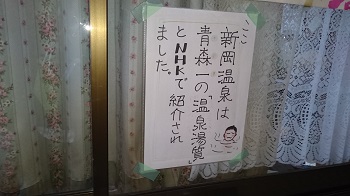 ここ
新岡温泉は
青森一の「温泉湯質」
とNHKで紹介され
ました。